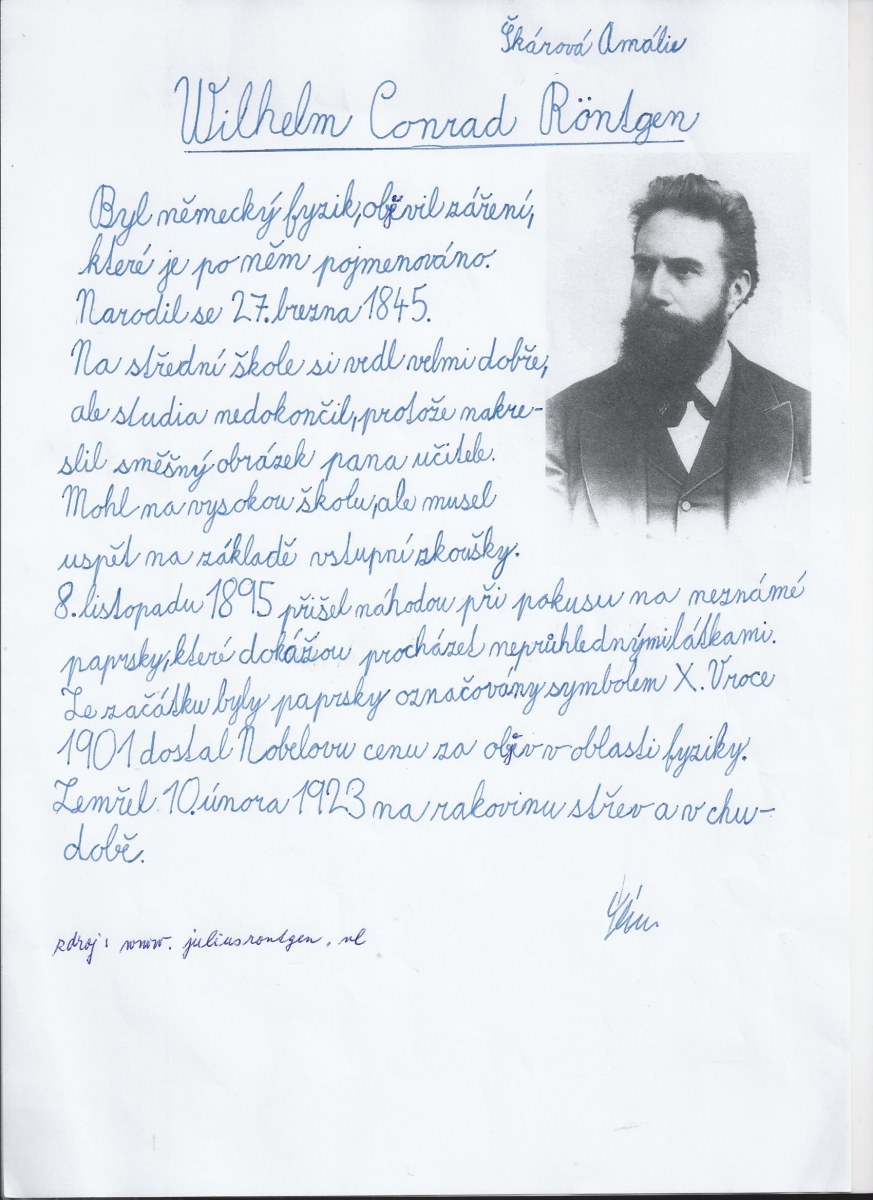 Škárová Amálie
Wilhelm Conrad Röntgen
Byl německý fyzik, objevil záření,
které je po něm pojmenováno.
Narodil se 27. března 1845.
Na střední škole si vedl velmi dobře,
ale studia nedokončil, protože nakre-
slil směšný obrázek pana učitele.
Mohl na vysokou školu, ale musel
uspět na základě vstupní zkoušky.
8. listopadu 1895 přišel náhodou při pokusu na neznámé
paprsky, které dokážíou procházet neprůhlednými látkami.
Ze začátku byly paprsky označovány symbolem X. V roce
1901 dostal Nobelovu cenu za objev v oblasti fyziky.
Zemřel 10. února 1923 na rakovinu střev a v chu-
době.
zdroj: www.juliusrontgen.nl